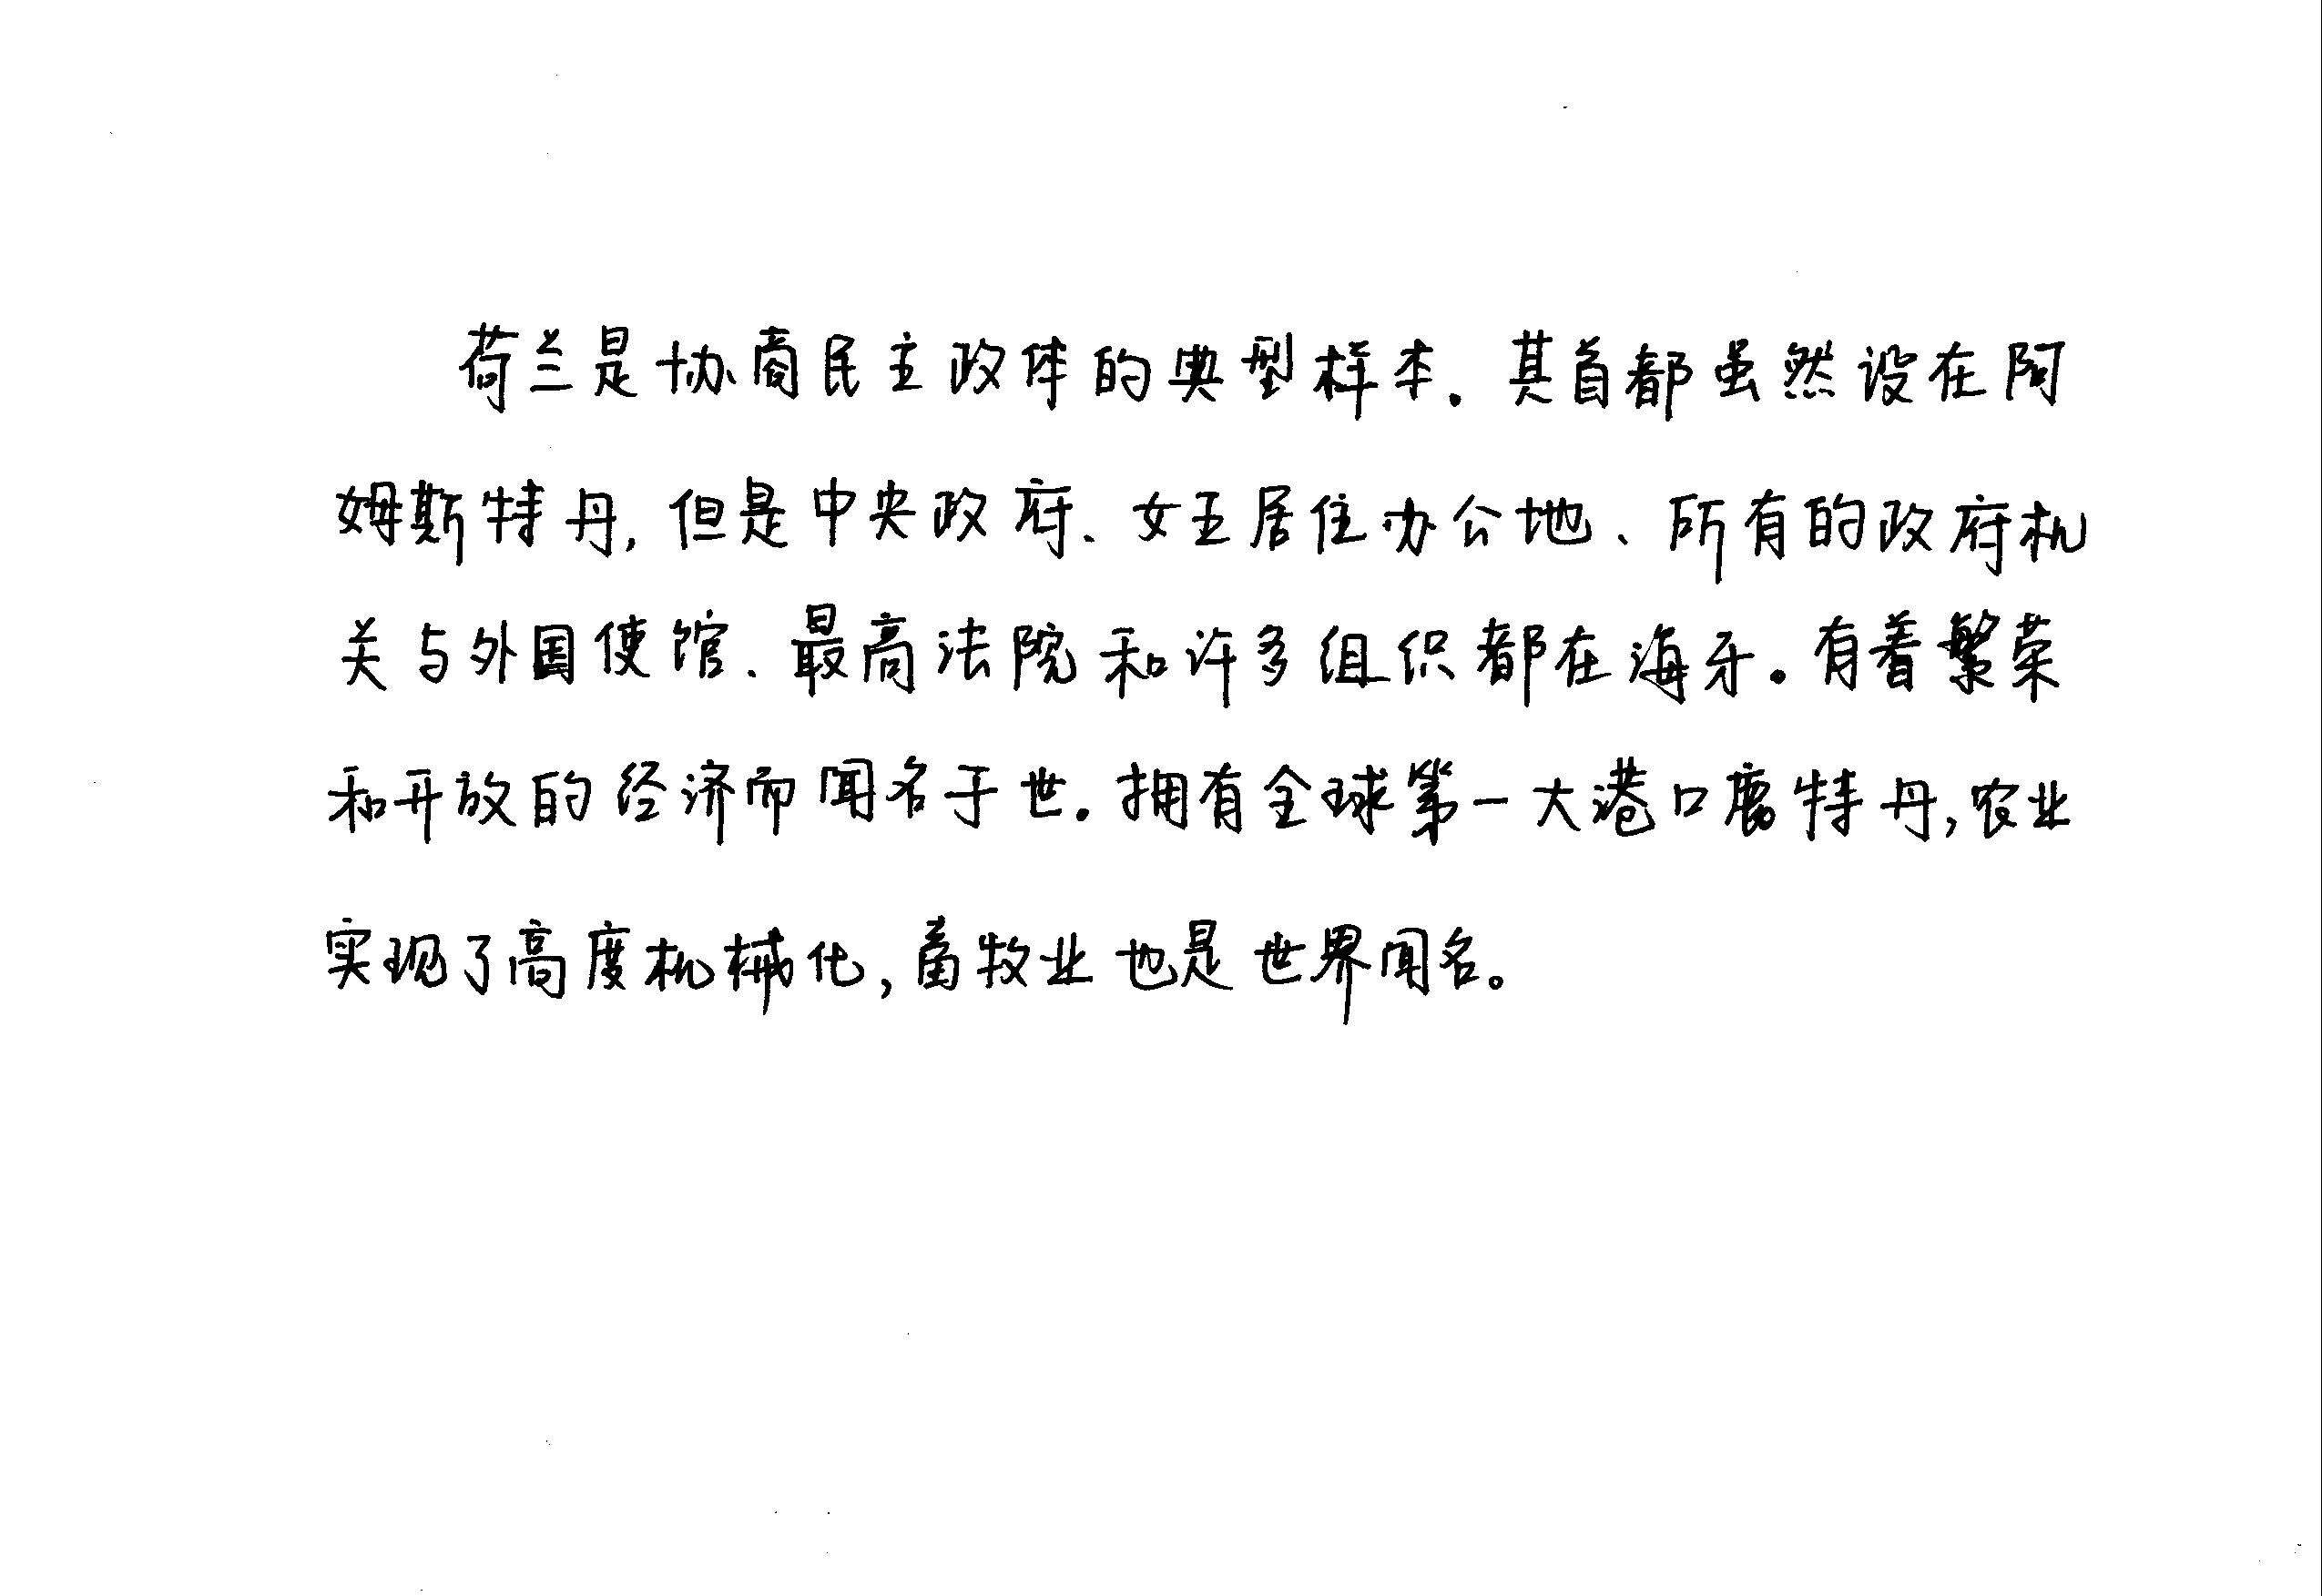 荷兰是协商民主政体的典型样本。其首都虽然设在阿
姆斯特丹,但是中央政府、女王居住办公地、所有的政府机
关与外国使馆、最高法院和许多组织都在海牙。有着繁荣
和开放的经济而闻名于世。拥有全球第一大港口鹿特丹,农业
实现了高度机械化,畜牧业也是世界闻名。